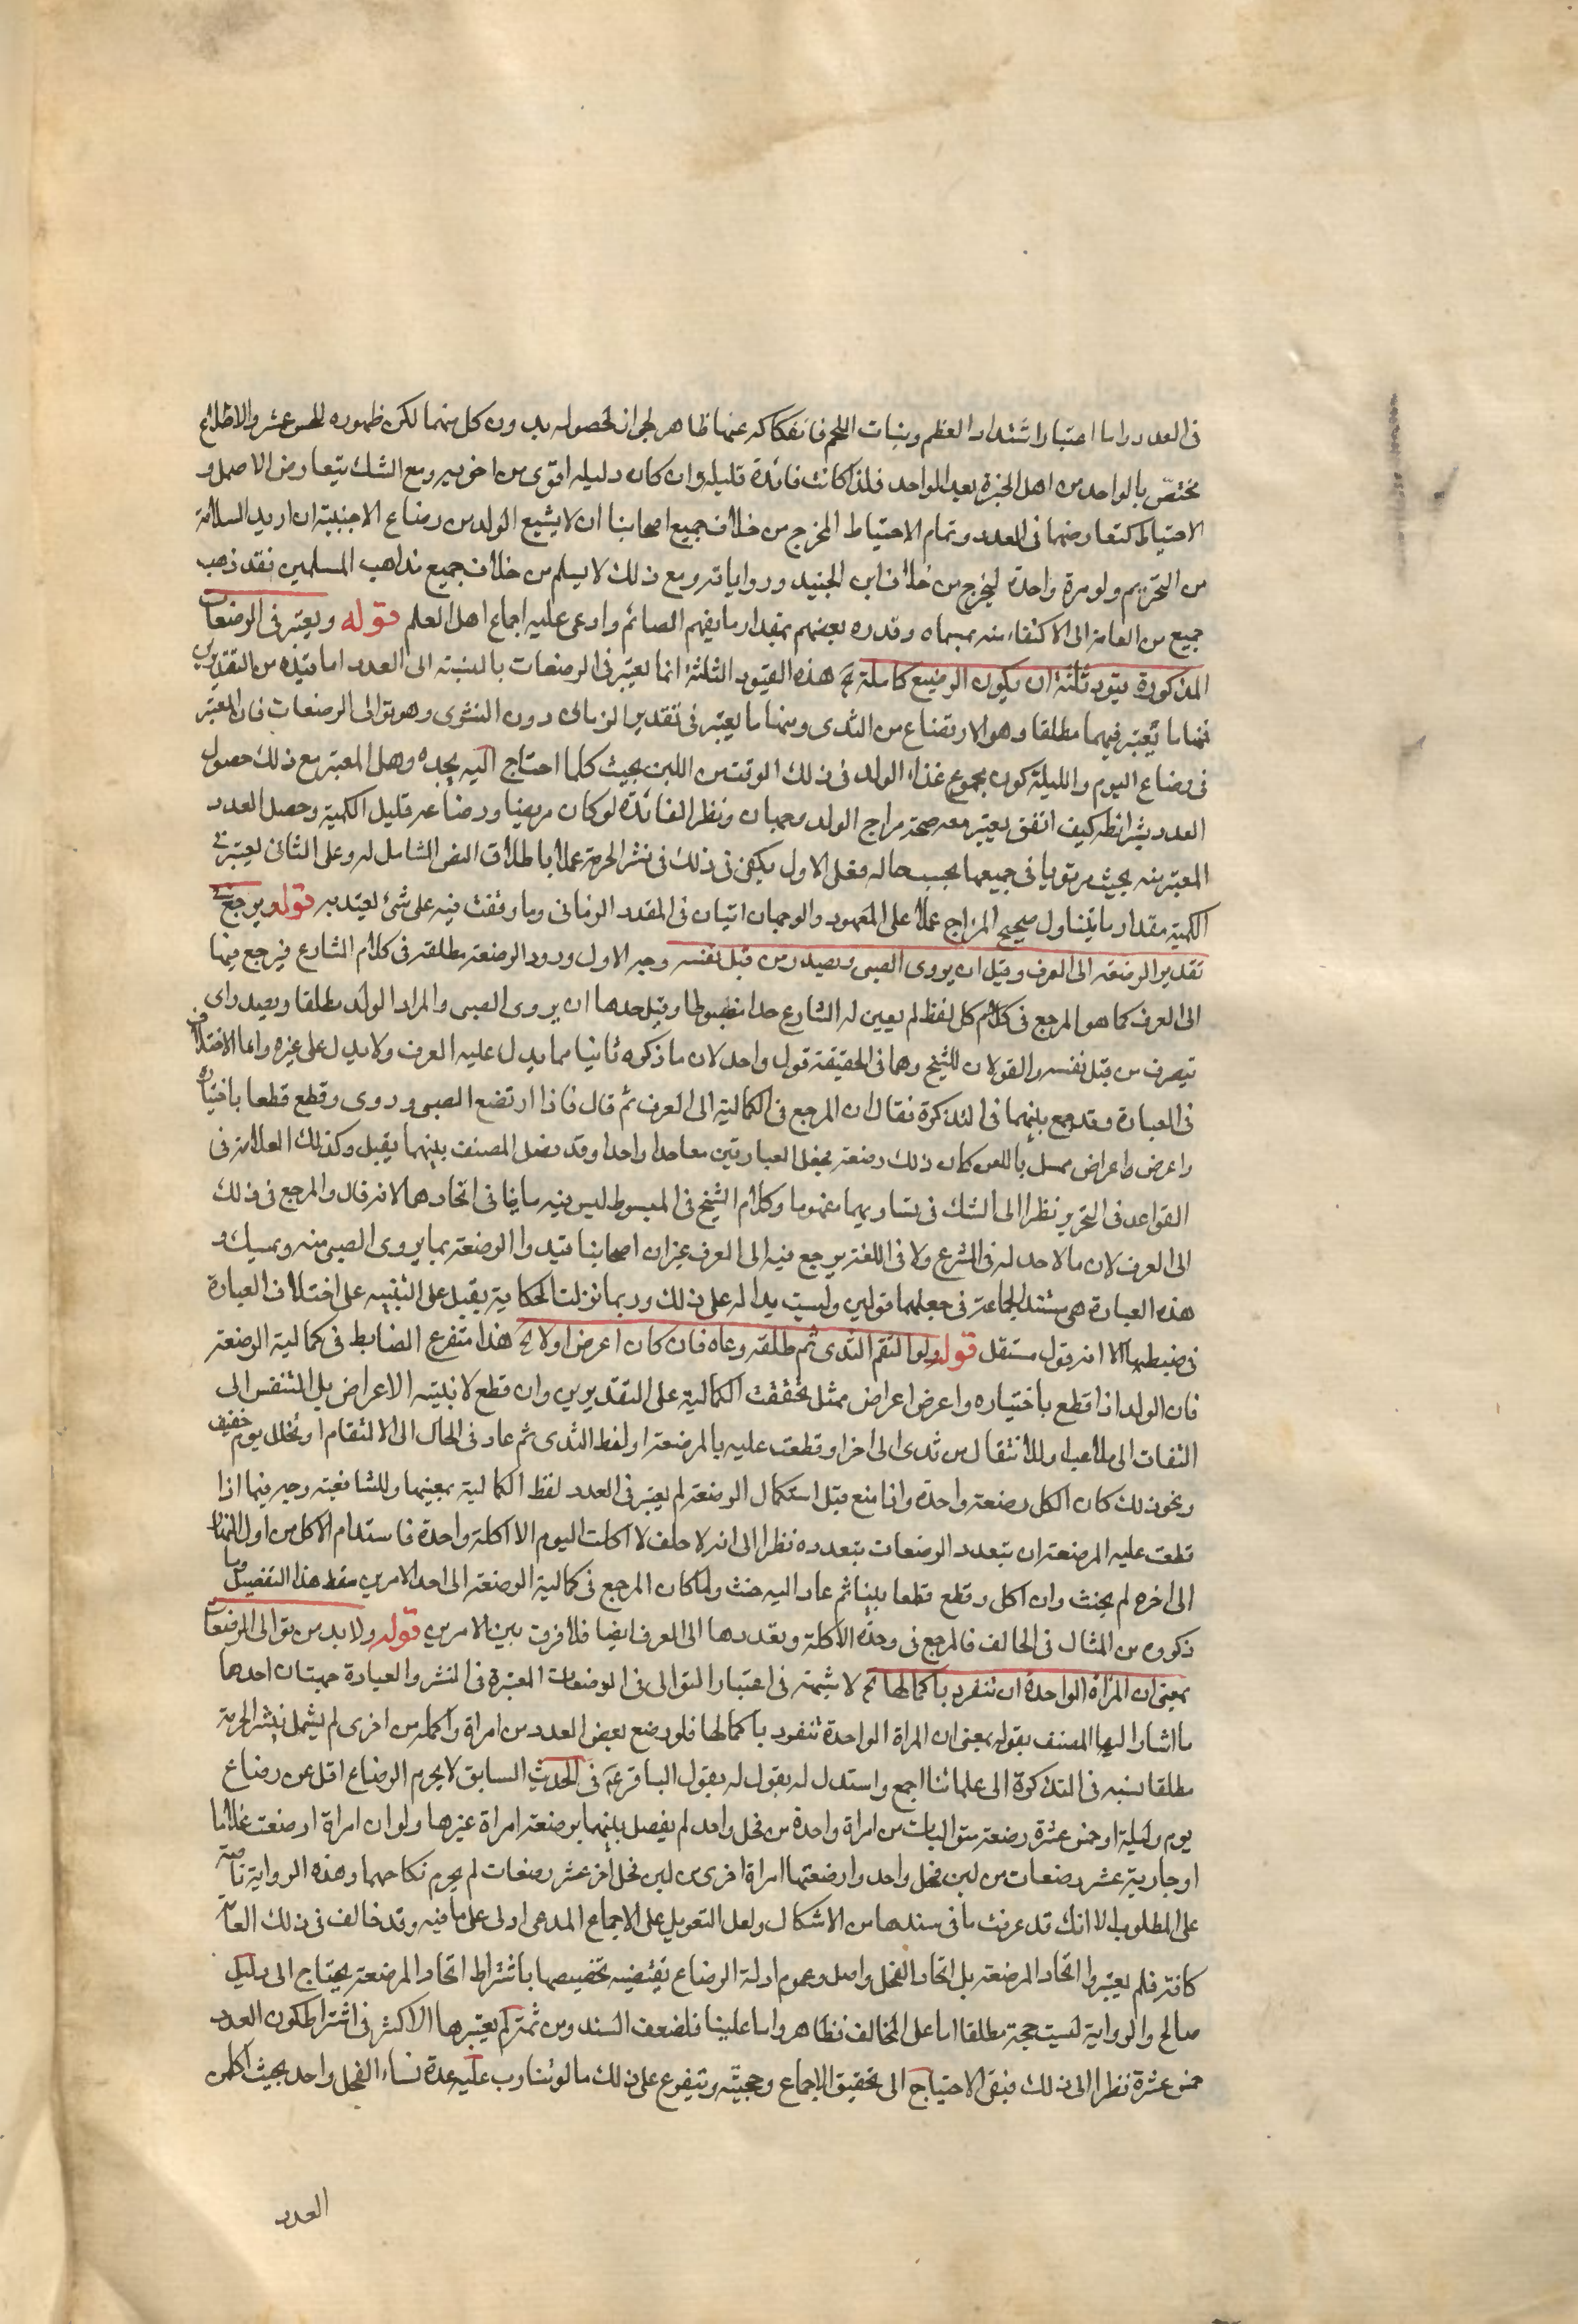 في العدد واما اعتبار اشتداد العظم ونبات اللحم فانفكاكه عنها ظاهر لجواز حصوله بدون كل منهما لكن ظهوره للحس عسر والاطلاع
يختص بالواحد من اهل الخبرة بعد الواحد فلذا كانت فائدة قليلة وان كان دليله اقوى من اخويه ومع الشك يتعارض الاصل و
الاحتياط كتعارضهما في العدد وتمام الاحتياط المخرج من خلاف جميع اصحابنا ان لا يشبع الولد من رضاع الاجنبية ان اريد السلامة
من التحريم ولو مرة واحدة ليخرج من خلاف ابن الجنيد ورواياته ومع ذلك لا يسلم من خلاف جميع مذاهب المسلمين فقد ذهب
جميع من العامة الى الاكتفاء منه بمسماه وقدره بعضهم بمقدار ما يفهم الصائم وادعى عليه اجماع اهل العلم قوله ويعتبر في الرضعات
المذكورة قيود ثلثة ان يكون الرضيع كاملة الخ هذه القيود الثلثة انما يعتبر في الرضعات بالنسبة الى العدد اما قيده من التقديرين
فمنها ما يعتبر فيهما مطلقا وهو الارتضاع من الثدى ومنها ما يعتبر في تقدير الزماني دون النشوي وهو توالى الرضعات فان المعتبر
في رضاع اليوم والليلة كون مجموع غذاء الولد في ذلك الوقت من اللبن بحيث كلما احتاج اليه يجده وهل المعتبر مع ذلك حصول
العدد بشرائطه كيف اتفق يعتبر معه صحة مزاج الولد وجهان وتظهر الفائدة لو كان مريضا ورضاعه قليل الكمية وحصل العدد
المعتبر منه بحيث يرتوى بها في جميعها بحسب حاله فعلى الاول يكفي في ذلك في نشر الحرمة عملا باطلاق النص الشامل له وعلى الثاني يعتبر في
الكمية مقدار ما يتناول صحيح المزاج عملا على المعهود والوجهان اتيان في المقدر الزماني وما وقفت فيه على شئ يعتد به قوله ويرجع في
تقدير الرضعة الى العرف وقيل ان يروى الصبي ويصدر من قبل نفسه وجه الاول ورود الرضعة مطلقة في كلام الشارع فيرجع فيها
الى العرف كما هو المرجع في كلام كل لفظ لم يعين له الشارع حدا مضبوطا وقيل حدها ان يروى الصبي والمراد الولد مطلقا ويصدر اى
يتصرف من قبل نفسه والقولان للشيخ وهما في الحقيقة قول واحد لان ما ذكره ثانيا مما يدل عليه العرف ولا يدل على غيره وانما الاختلاف
في العبارة وقد جمع بينهما في التذكرة فقال ان المرجع في الكمالية الى العرف ثم قال فاذا ارتضع الصبي وروى وقطع قطعا باختياره
واعرض اعراض ممسل باللبن كان ذلك رضعة فجعل العبارتين معا حدا واحدا وقد فصل المصنف بينهما بقيل وكذلك العلامة في
القواعد في التحرير نظرا الى الشك في تساويهما مفهوما وكلام الشيخ في المبسوط ليس فيه ما ينافي اتحادهما لانه قال والمرجع في ذلك
الى العرف لان ما لا حد له في الشرع ولا في اللغة يرجع فيه الى العرف غير ان اصحابنا قيدوا الرضعة بما يروى الصبي منه ويمسك و
هذه العبارة هي مستند الجماعة في جعلهما قولين وليست يدا له على ذلك وربما نزلت الحكاية بقيل على التنبيه على اختلاف العبارة
في ضبطها لا انه قول مستقل قوله ولو التقم الثدى ثم طلقه وعاه فان كان اعرض اولا الخ هذا متفرع الضابط في كمالية الرضعة
فان الولد اذا قطع باختياره واعرض اعراض ممتل تحققت الكمالية على التقديرين وان قطع لا بنية الاعراض بل للتنفس الى
التفات الى ملاعب او للانتقال من ثدى الى اخر او قطعت عليه بالمرضعة او لفظ الثدى ثم عاد في الحال الى الالتقام او تخلل يوم خفيف
ونحو ذلك كان الكل رضعة واحدة واذا منع قبل استكمال الرضعة لم يعتبر في العدد لفقد الكمالية بعينها وللشافعية وجه فيما اذا
قطعت عليه المرضعة ان يتعدد الرضعات بتعدده نظرا الى انه لا حلف لا اكلت اليوم الا اكلة واحدة فاستدام الاكل من اول النهار
الى اخره لم يحنث وان اكل وقطع قطعا بينا ثم عاد اليه حنث ولما كان المرجع في كمالية الرضعة الى احد الامرين سقط هذا التفصيل وما
ذكروه من المثال في الحالف فالمرجع في وحدة الاكلة وتعددها الى العرف ايضا فلا فرق بين الامرين قوله ولا بد من توالى الرضعات
بمعنى ان المراة الواحدة ان تنفرد باكمالها الخ لا شبهة في اعتبار التوالى في الرضعات المعتبرة في النشر والعبارة جهتان احدهما
ما اشار اليها المصنف بقوله بمعنى ان المراة الواحدة تنفرد باكمالها فلو رضع بعض العدد من امراة واكمله من اخرى لم يشمل نشر الحرمة
مطلقا نسبه في التذكرة الى علمائنا اجمع واستدل له بقول له بقول الباقر ع في الحديث السابق لا يحرم الرضاع اقل من رضاع
يوم وليلة او خمس عشرة رضعة متواليات من امراة واحدة من فحل واحد لم يفصل بينهما برضعة امراة غيرها ولو ان امراة ارضعت غلاما
او جارية عشر رضعات من لبن فحل واحد وارضعتها امراة اخرى من لبن فحل آخر عشر رضعات لم يحرم نكاحهما وهذه الرواية ناصة
على المطلوب الا انك قد عرفت ما في سندها من الاشكال ولعل التعويل على الاجماع المدعى اولى على ما فيه وقد خالف في ذلك العامة
كافة فلم يعتبروا اتحاد المرضعة بل اتحاد الفحل واصل وعموم ادلة الرضاع يقتضيه تخصيصها باشتراط اتحاد المرضعة يحتاج الى دليل
صالح والرواية ليست حجة مطلقا اما على المخالف فظاهر واما علينا فلضعف السند ومن ثمة لم يعتبرها الاكثر في اشتراط كون العدد
خمس عشرة نظرا الى ذلك فبقى الاحتياج الى تحقيق الاجماع وحجيته ويتفرع على ذلك ما لو تناوب عليه عدة نساء الفحل واحد بحيث اكملن
العدد